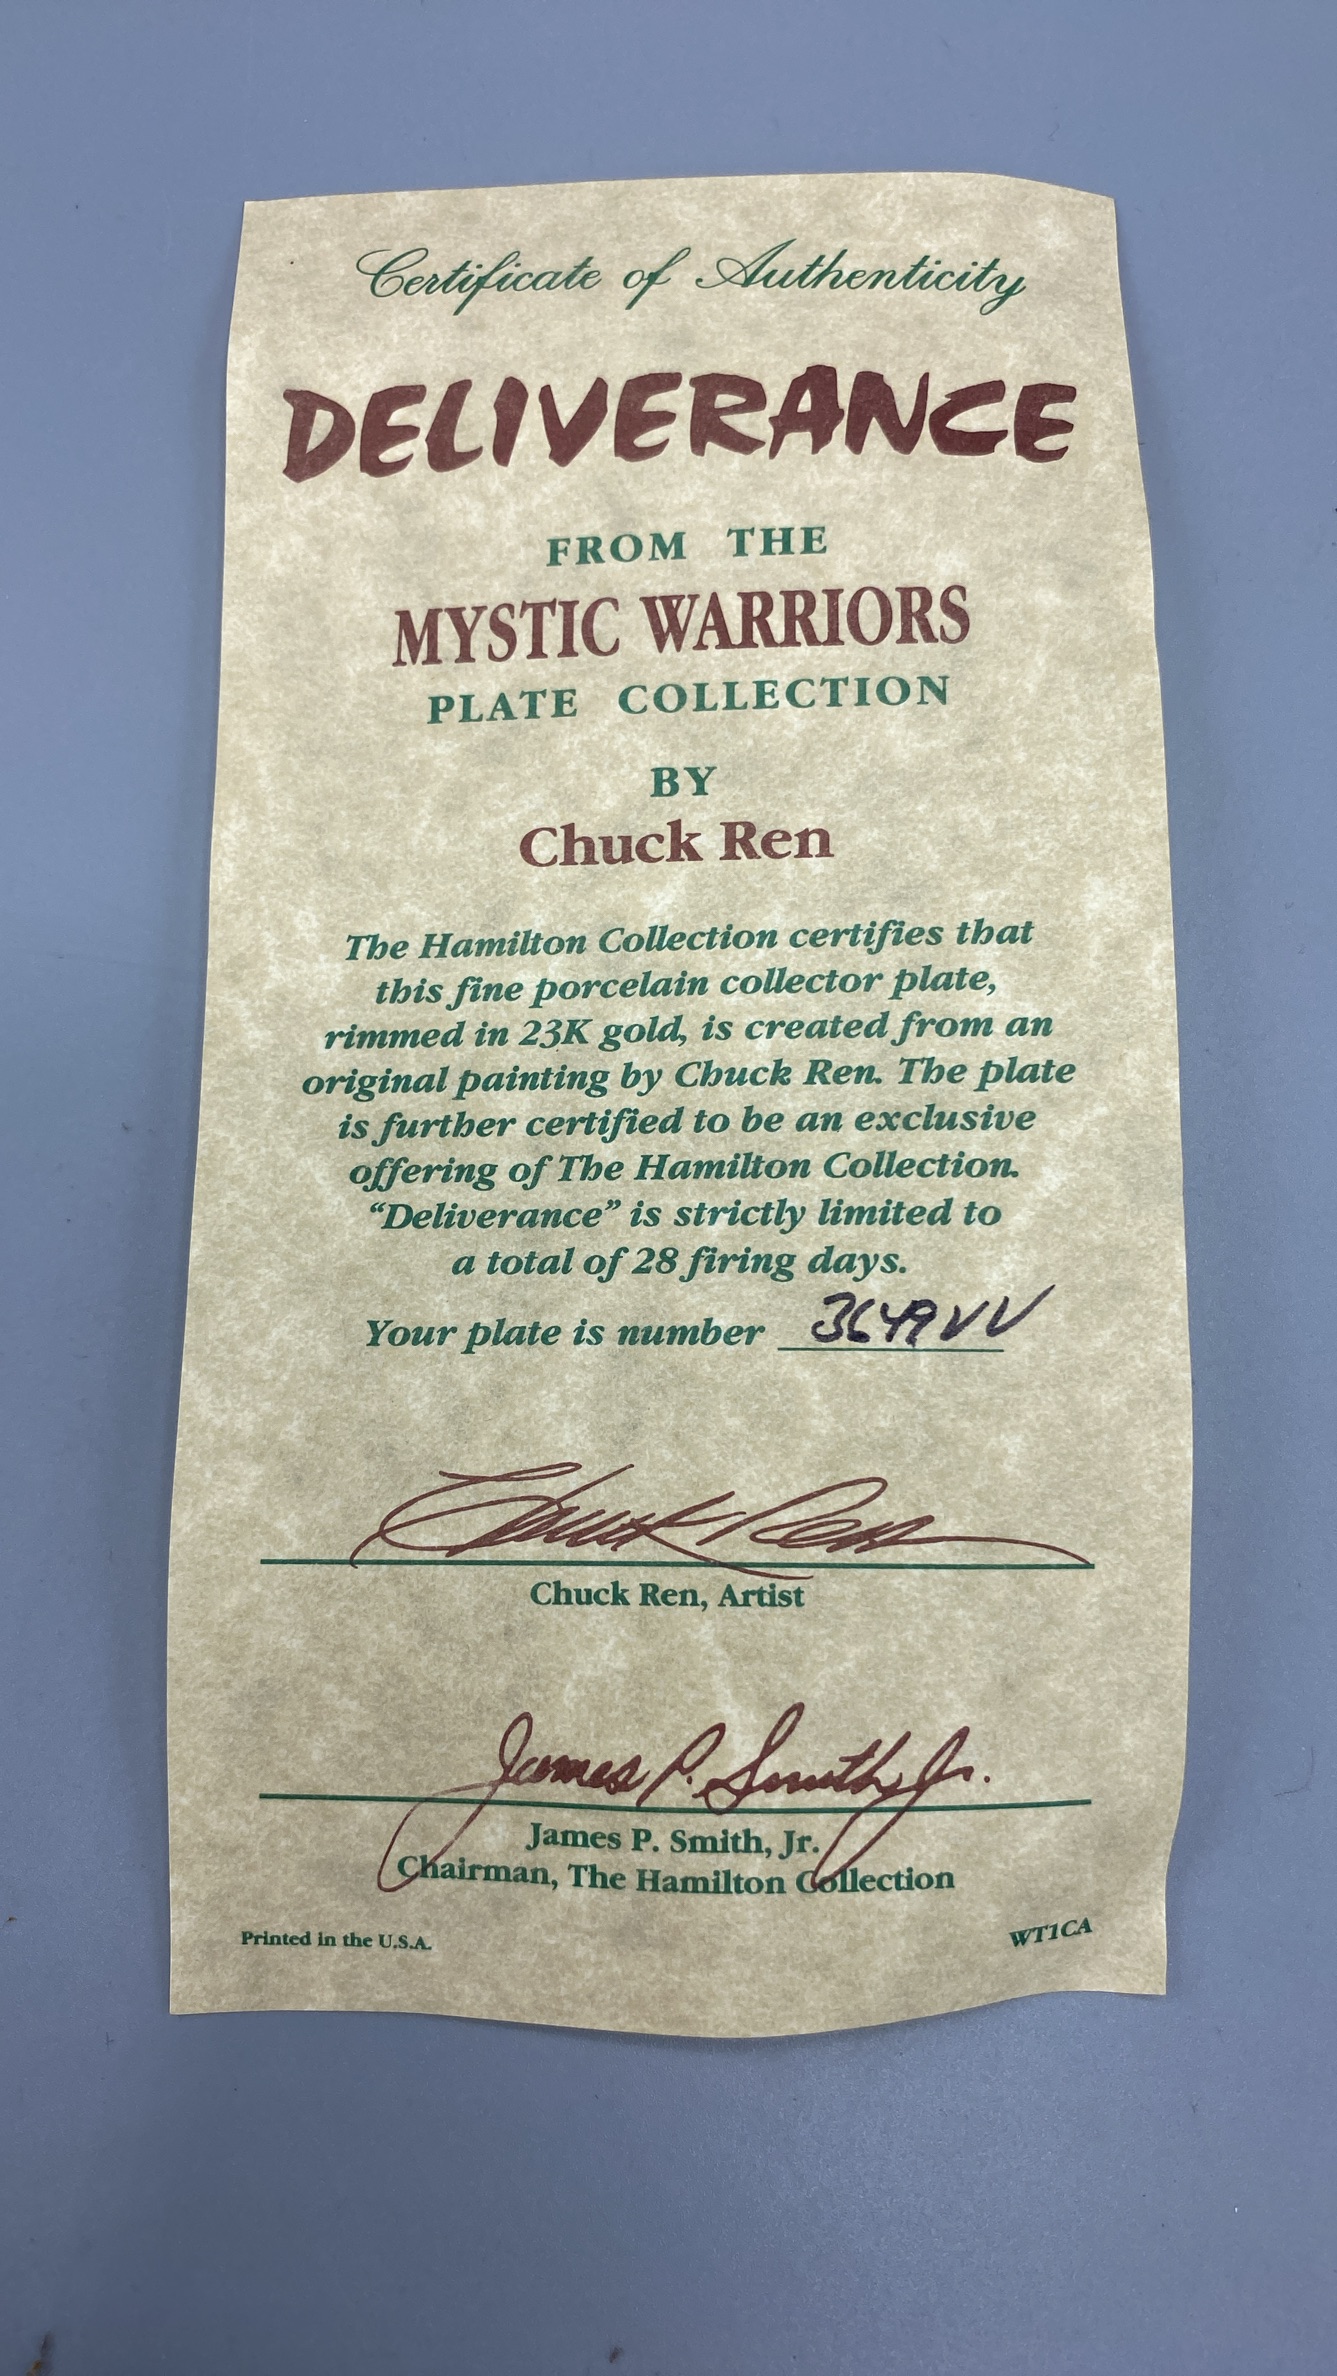 Certificate of Authenticity
DELIVERANCE
FROM THE
MYSTIC WARRIORS
PLATE COLLECTION
BY
Chuck Ren
The Hamilton Collection certifies that
this fine porcelain collector plate,
rimmed in 23K gold, is created from an
original painting by Chuck Ren. The plate
is further certified to be an exclusive
offering of The Hamilton Collection.
“Deliverance” is strictly limited to
a total of 28 firing days.
Your plate is number 3649VV
Chuck Ren
Chuck Ren, Artist
James P. Smith, Jr.
James P. Smith, Jr.
Chairman, The Hamilton Collection
Printed in the U.S.A. WT1CA